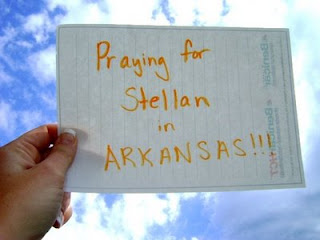 Praying for
Stellan
in
ARKANSAS!!!